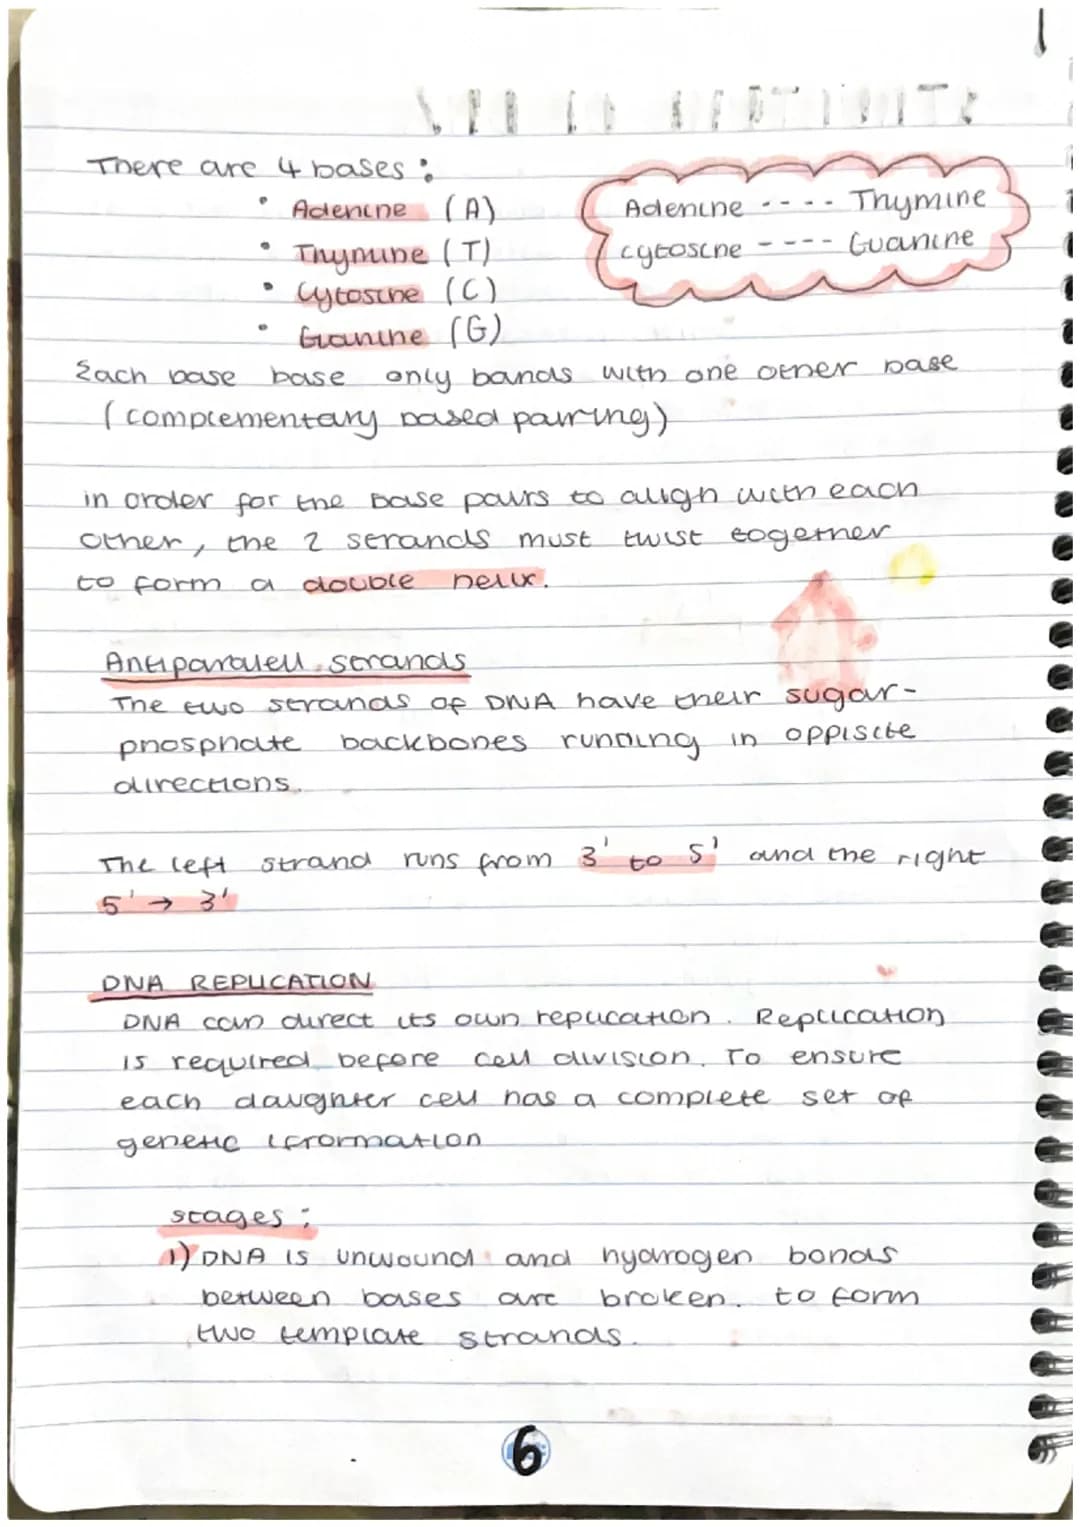 There are 4 bases :
• Adenine (A)
• Thymine (T)
• Cytosine (C)
• Guanine (G)
Adenine ---- Thymine
cytosine ---- Guanine
Each base base only bonds with one other base
(complementary based pairing)
in order for the base pairs to align with each
other, the 2 strands must twist together
to form a double helix.
Antiparallell strands
The two strands of DNA have their sugar-
phosphate backbones running in oppisite
directions.
The left strand runs from 3' to 5' and the right
5' → 3'
DNA REPLICATION
DNA can direct its own replication. Replication
is required before cell division. To ensure
each daughter cell has a complete set of
genetic
stages :
1) DNA is unwound and hydrogen bonds
between bases are broken. to form
two template strands.
6